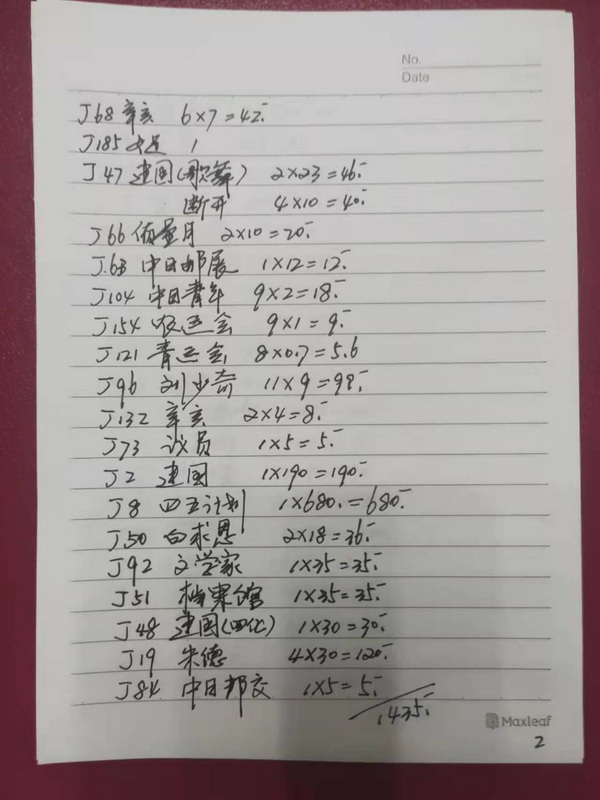 No.
Date
J68 辛亥 6×7=42.-
J185 女足 1
J47 建国(歌舞) 2×23=46.-
断开 4×10=40.-
J66 质量月 2×10=20.-
J.63 中日邮展 1×12=12.-
J104 中日青年 9×2=18.-
J154 农运会 9×1=9.-
J121 青运会 8×0.7=5.6
J96 刘少奇 11×9=99.-
J132 辛亥 2×4=8.-
J73 议员 1×5=5.-
J2 建国 1×190=190.-
J8 四五计划 1×680.=680.-
J50 白求恩 2×18=36.-
J92 文学家 1×35=35.-
J51 档案馆 1×35=35.-
J48 建国(四化) 1×30=30.-
J19 朱德 4×30=120.-
J84 中日邦交 1×5=5.-
1435.-
Maxleaf
2